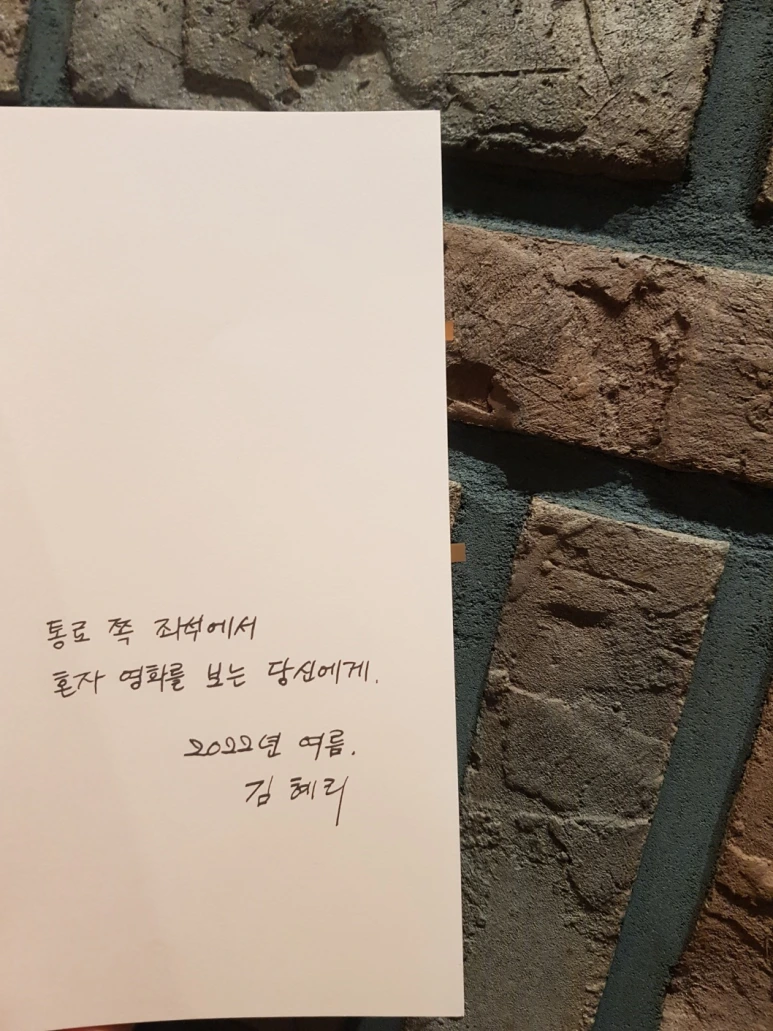 통로 쪽 좌석에서
혼자 영화를 보는 당신에게.
2022년 여름.
김혜리